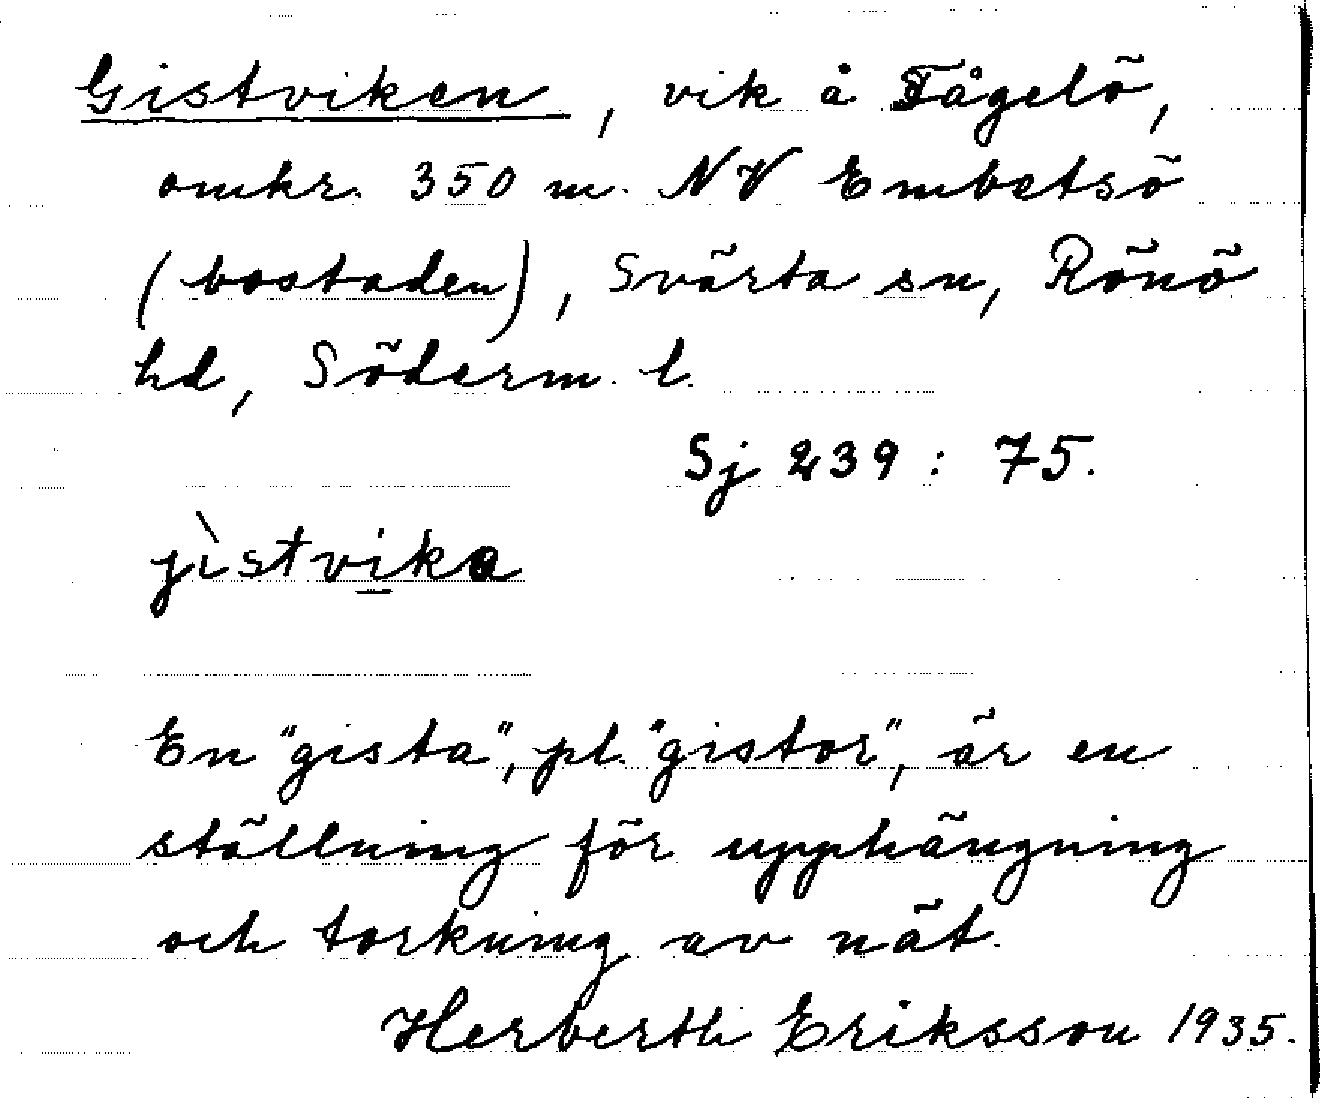 Gistviken, vik å Fågelö,
omkr. 350 m. NV Embetsö
(bostaden), Svärta sn, Rönö
hd, Söderm. l.
Sj 239 : 75.
jìstvika
En "gista", pl. "gistor", är en
ställning för upphängning
och torkning av nät.
Herberth Eriksson 1935.